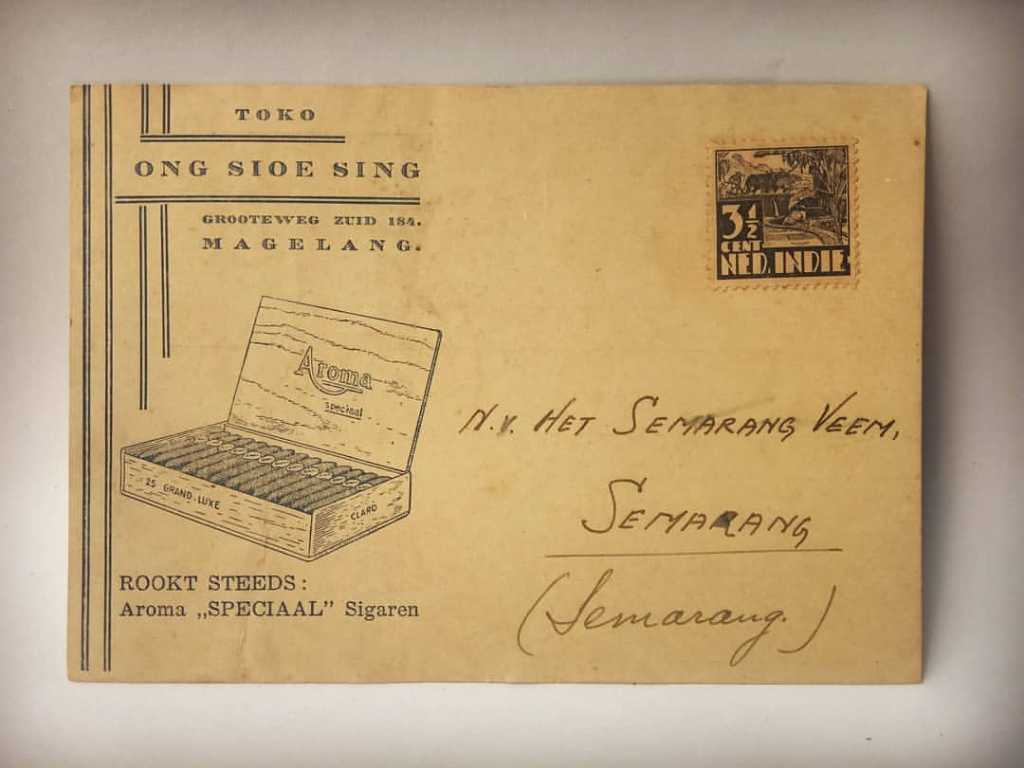 TOKO
ONG SIOE SING
GROOTEWEG ZUID 184.
MAGELANG.
3½
CENT
NED. INDIE
Aroma
speciaal
25 GRAND-LUXE
CLARO
N.V. HET SEMARANG VEEM,
SEMARANG
(Semarang.)
ROOKT STEEDS:
Aroma „SPECIAAL” Sigaren